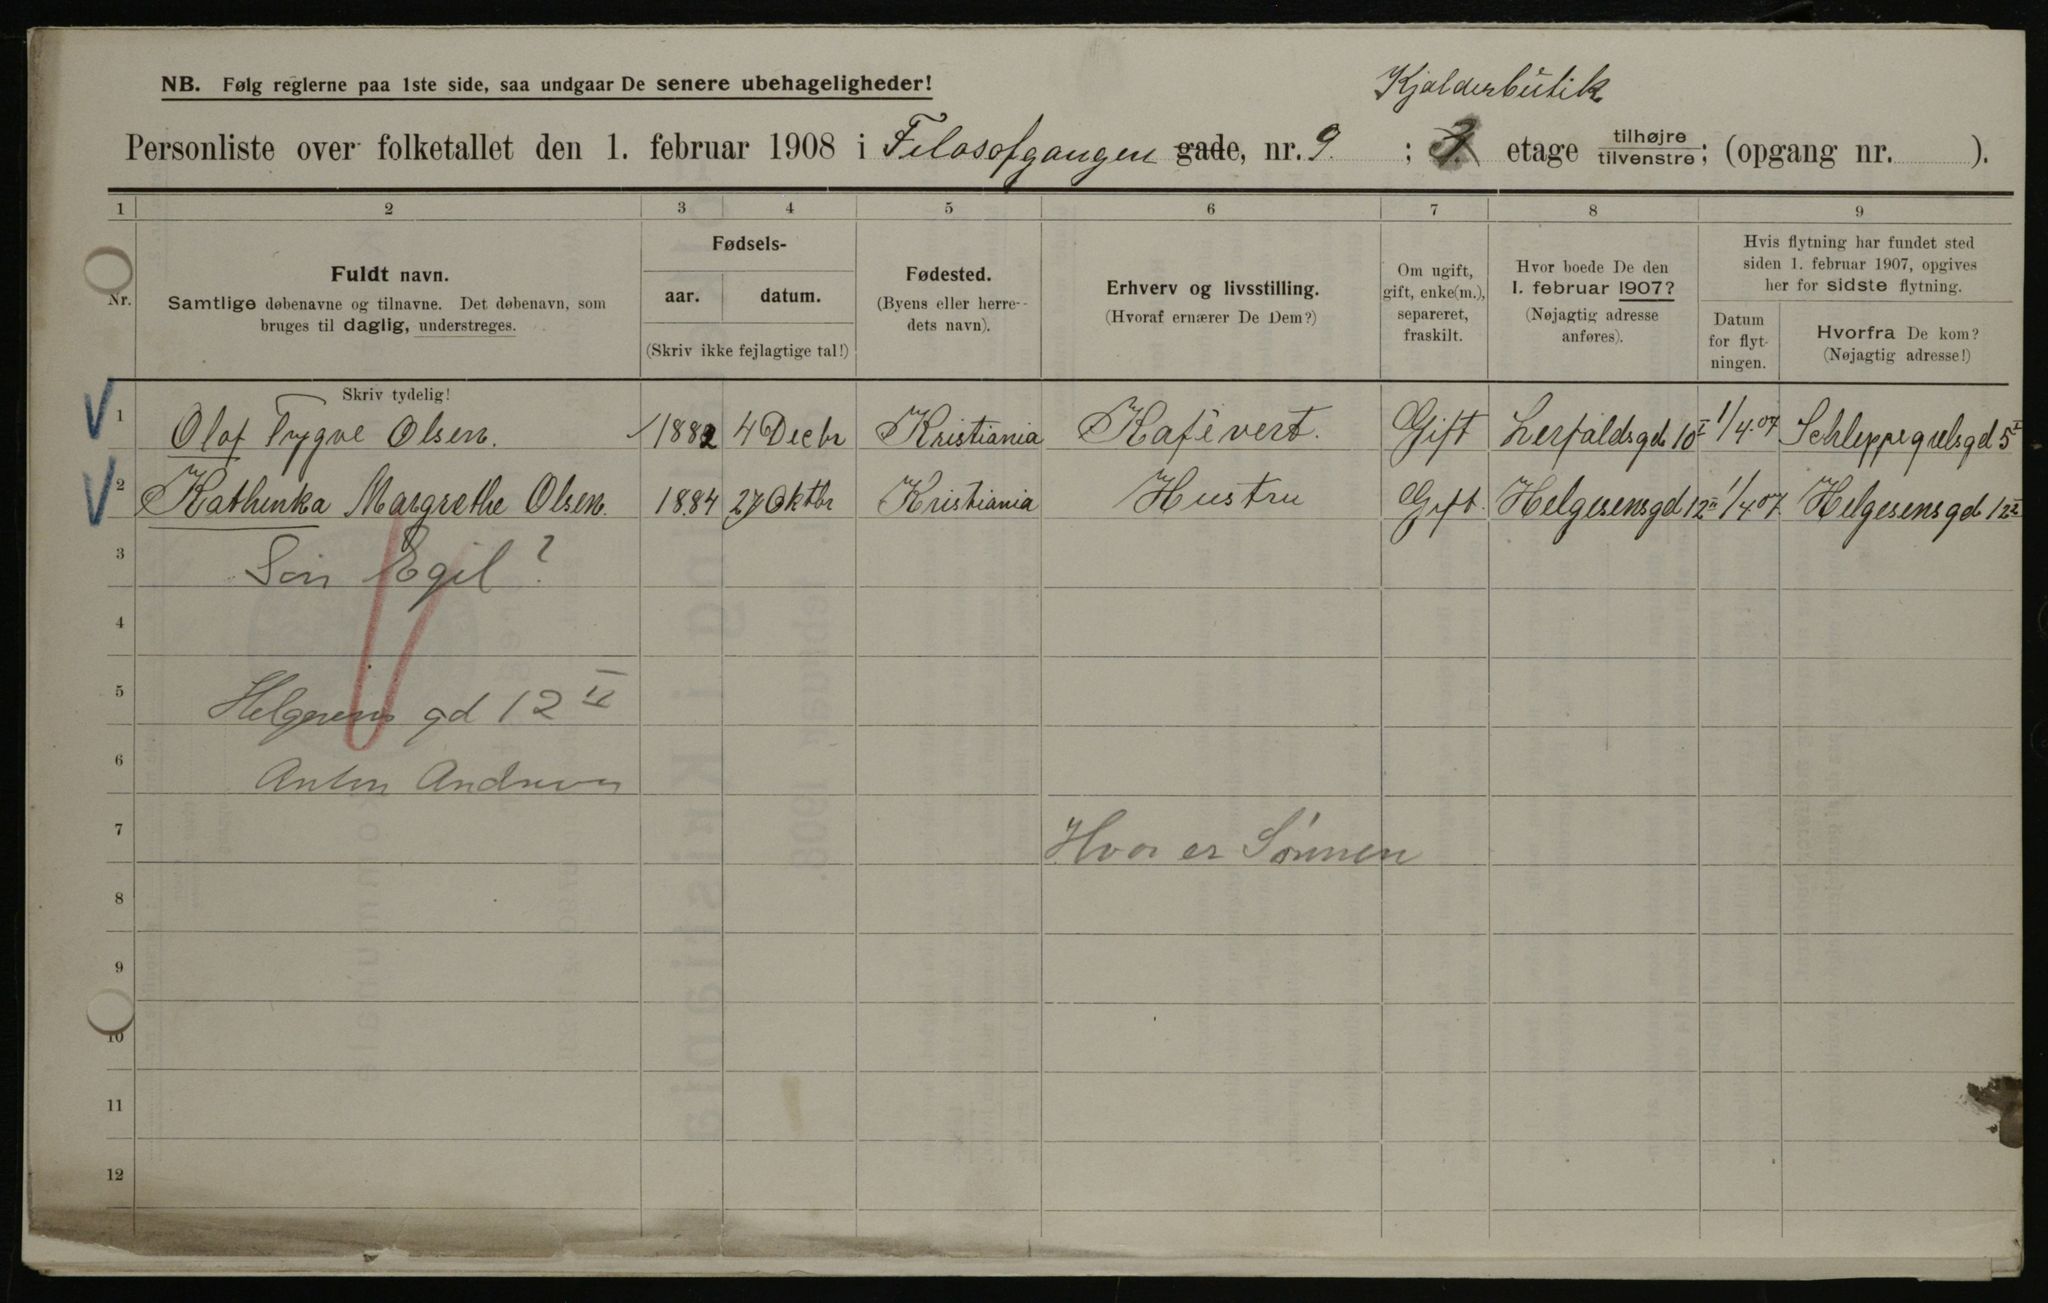 NB. Følg reglerne paa 1ste side, saa undgaar De senere ubehageligheder!
Kjælderbutik
Personliste over folketallet den 1. februar 1908 i Filosofgangen gade, nr. 9. ; etage tilhøjre tilvenstre; (opgang nr. ).
1 2 3 4 5 6 7 8 9
Nr.
Fuldt navn.
Samtlige døbenavne og tilnavne. Det døbenavn, som
bruges til daglig, understreges.
Fødsels-
aar. datum.
(Skriv ikke fejlagtige tal!)
Fødested.
(Byens eller herre-
dets navn).
Erhverv og livsstilling.
(Hvoraf ernærer De Dem?)
Om ugift,
gift, enke(m.),
separeret,
fraskilt.
Hvor boede De den
1. februar 1907?
(Nøjagtig adresse
anføres).
Hvis flytning har fundet sted
siden 1. februar 1907, opgives
her for sidste flytning.
Datum
for flyt-
ningen.
Hvorfra De kom?
(Nøjagtig adresse!)
Skriv tydelig!
1 Olaf Trygve Olsen. 1882 4 Decbr Kristiania Kafévert. Gift Lerfaldsgd 10 I 1/4.07 Schleppegrelsgd 5 I
2 Kathinka Margrethe Olsen. 1884 27 Oktbr Kristiania Hustru Gift. Helgesensgd 12 II 1/4 07. Helgesensgd 12 II
3 Søn Egil?
4
5 Helgesens gd 12 II
6 Anton Andresen
7 Hvor er Sønnen
8
9
10
11
12